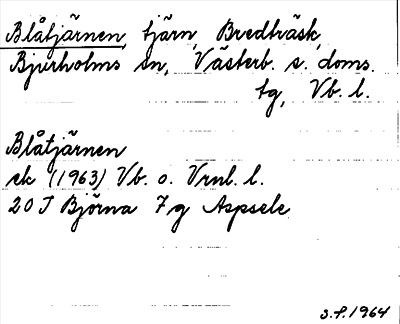 Blåtjärnen, tjärn, Bredträsk,
Bjurholms sn, Västerb. s. doms.
tg, Vb. l.
Blåtjärnen
ek (1963) Vb. o. Vrnl. l.
20 J Björna 7g Aspsele
3.P.1964